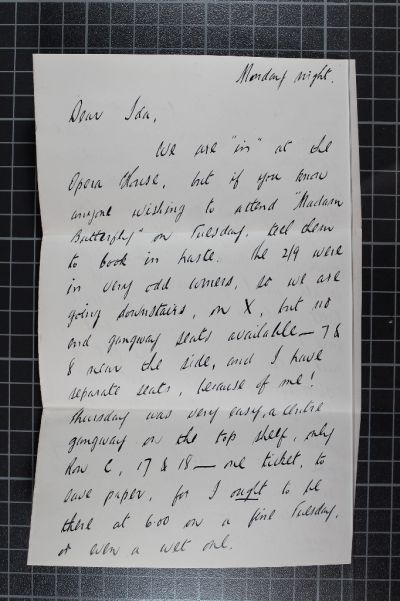 Monday night.
Dear Ida,
We are "in" at the
Opera House, but if you know
anyone wishing to attend "Madam
Butterfly" on Tuesday, tell them
to book in haste. The 2/9 were
in very odd corners, so we are
going downstairs, on X, but no
end gangway seats available — 7 &
8 near the side, and I have
separate seats, because of me!
Thursday was very easy, a centre
gangway on the top shelf, only
Row C, 17 & 18 — one ticket, to
save paper, for I ought to be
there at 6.00 on a fine Tuesday,
or even a wet one.